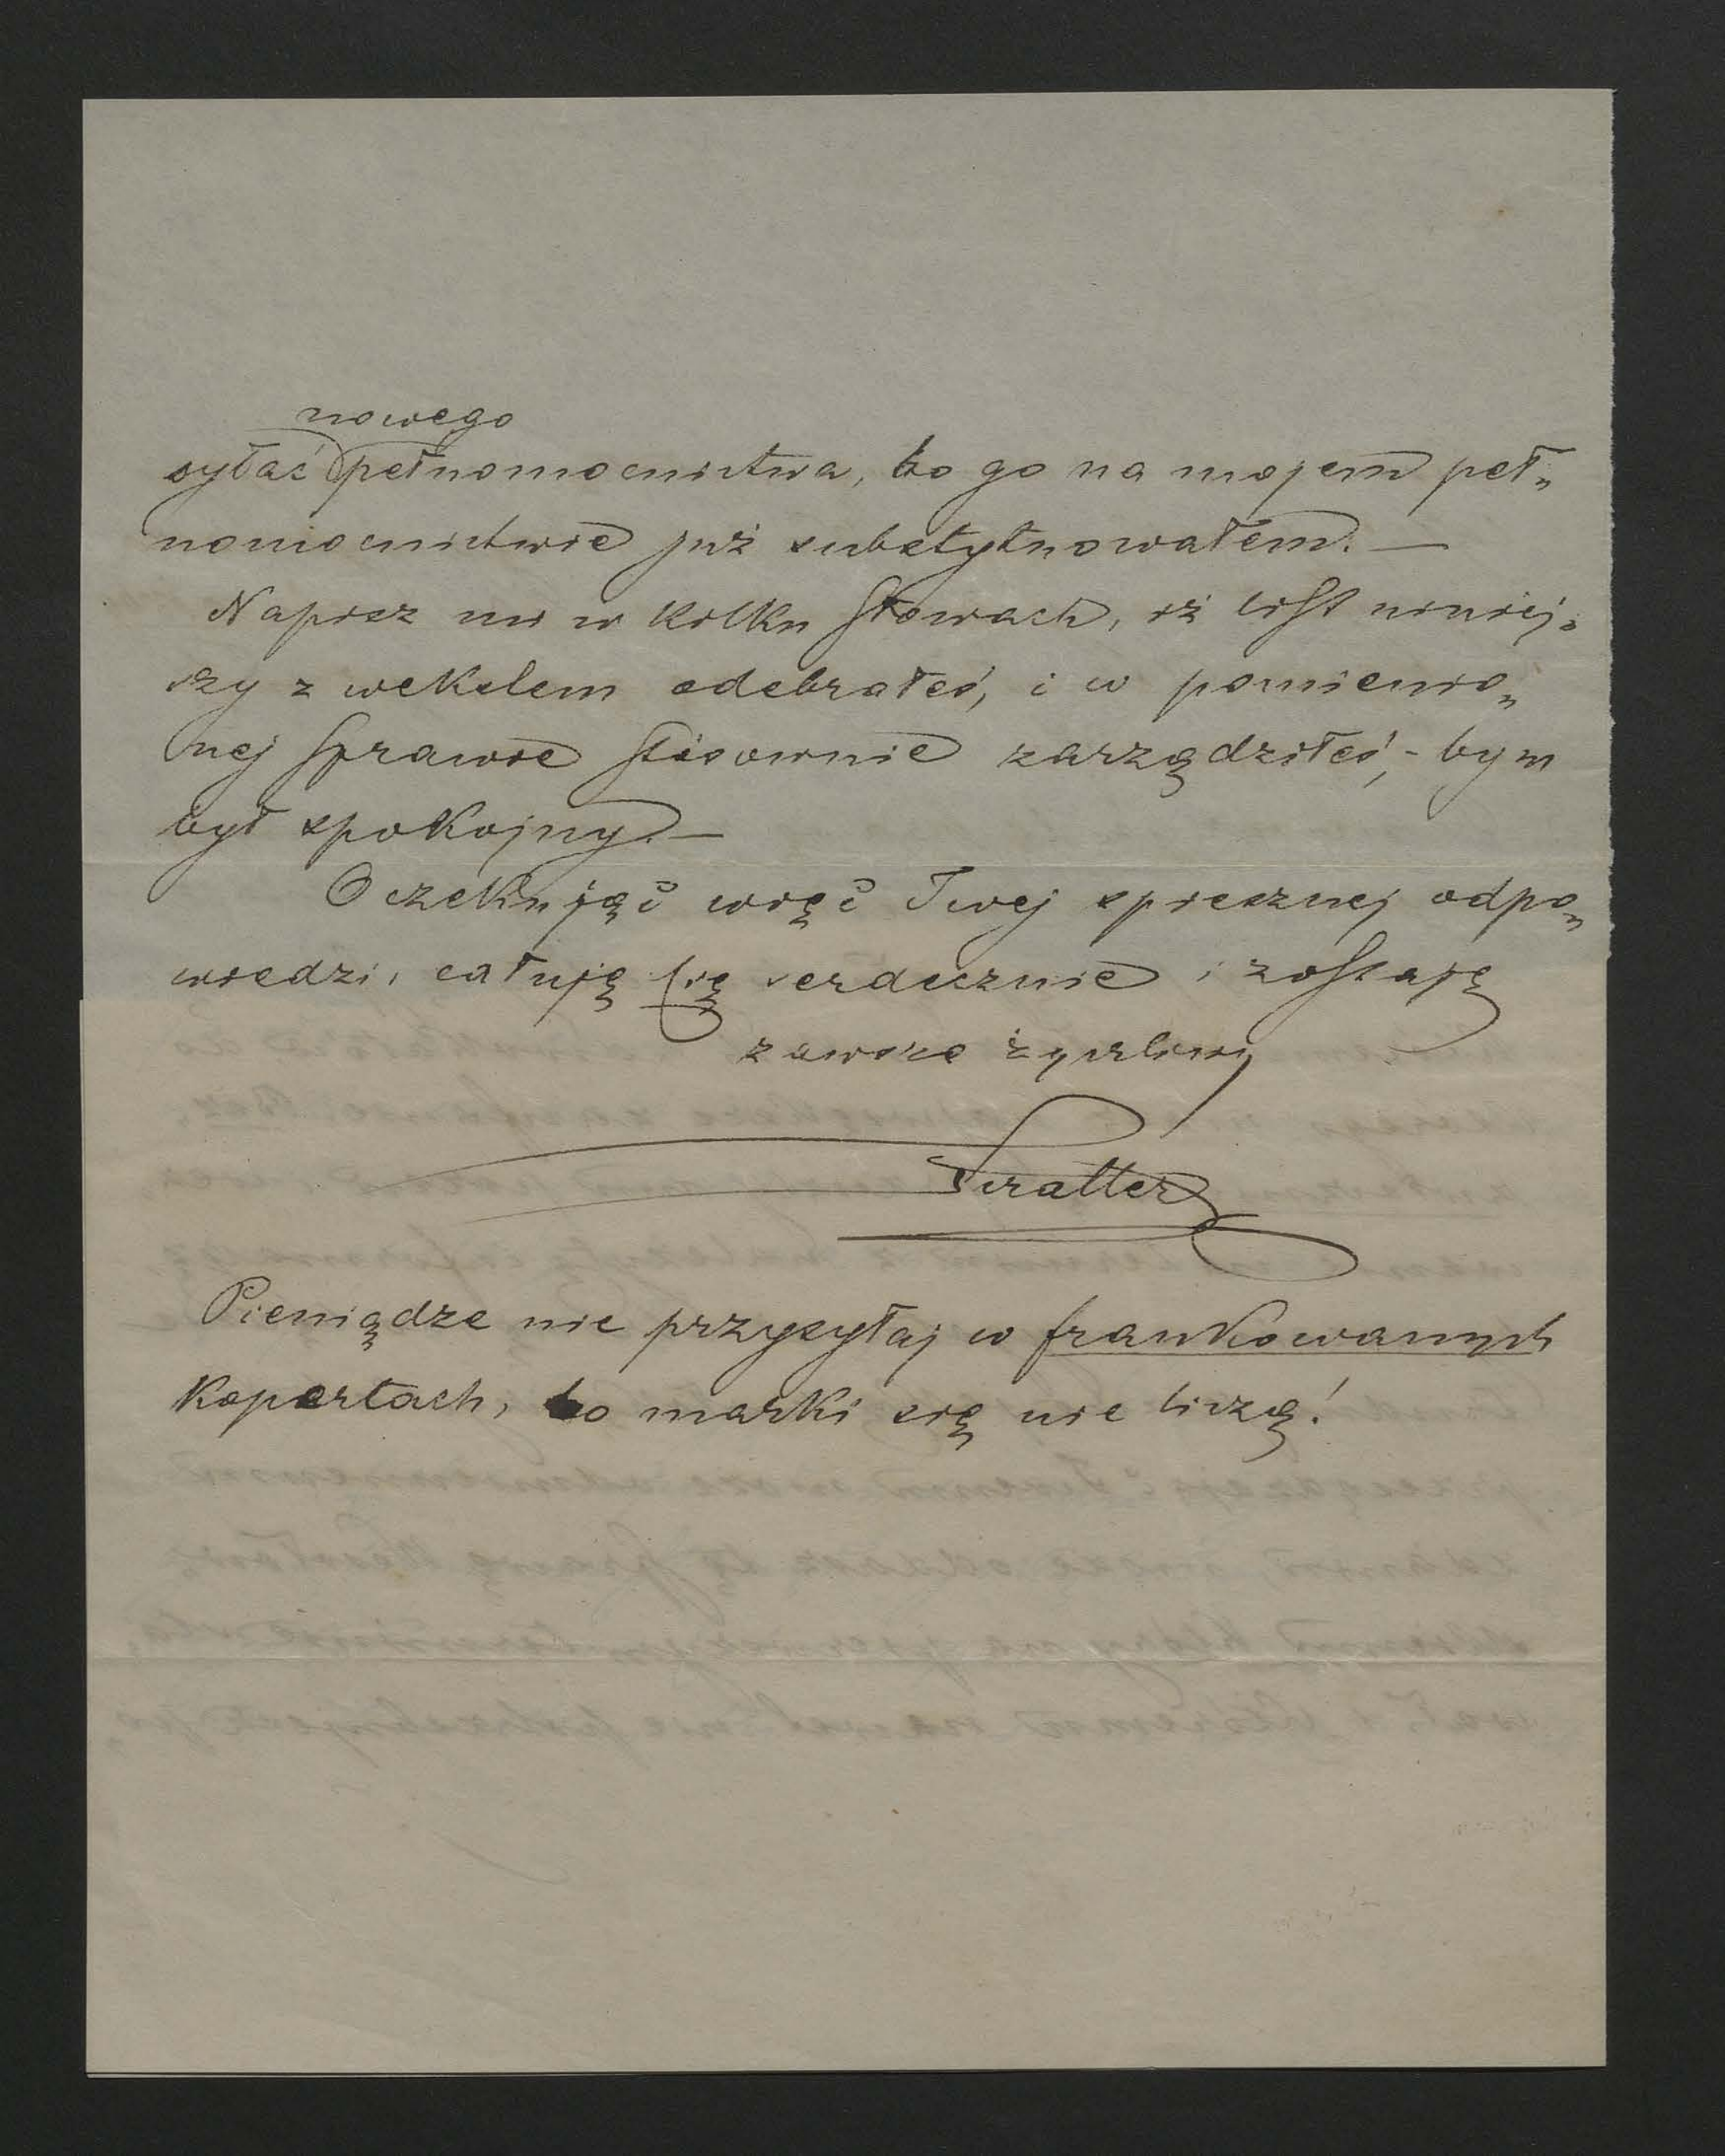 nowego
syłać pełnomocnictwa, bo go na mojem peł„
nomocnictwie już substytuowałem. —
Napisz mi w kilku słowach, iż list niniej„
szy z wekslem odebrałeś, i w pomienio„
nej sprawie stósownie zarządziłeś, - bym
był spokojny. —
Oczekując więc Twej spiesznej odpo„
wiedzi, całuję Cię serdecznie i zostaję
zawsze życzliwy
Pieniądze nie przysyłaj w frankowanych
kopertach, bo marki się nie liczą!